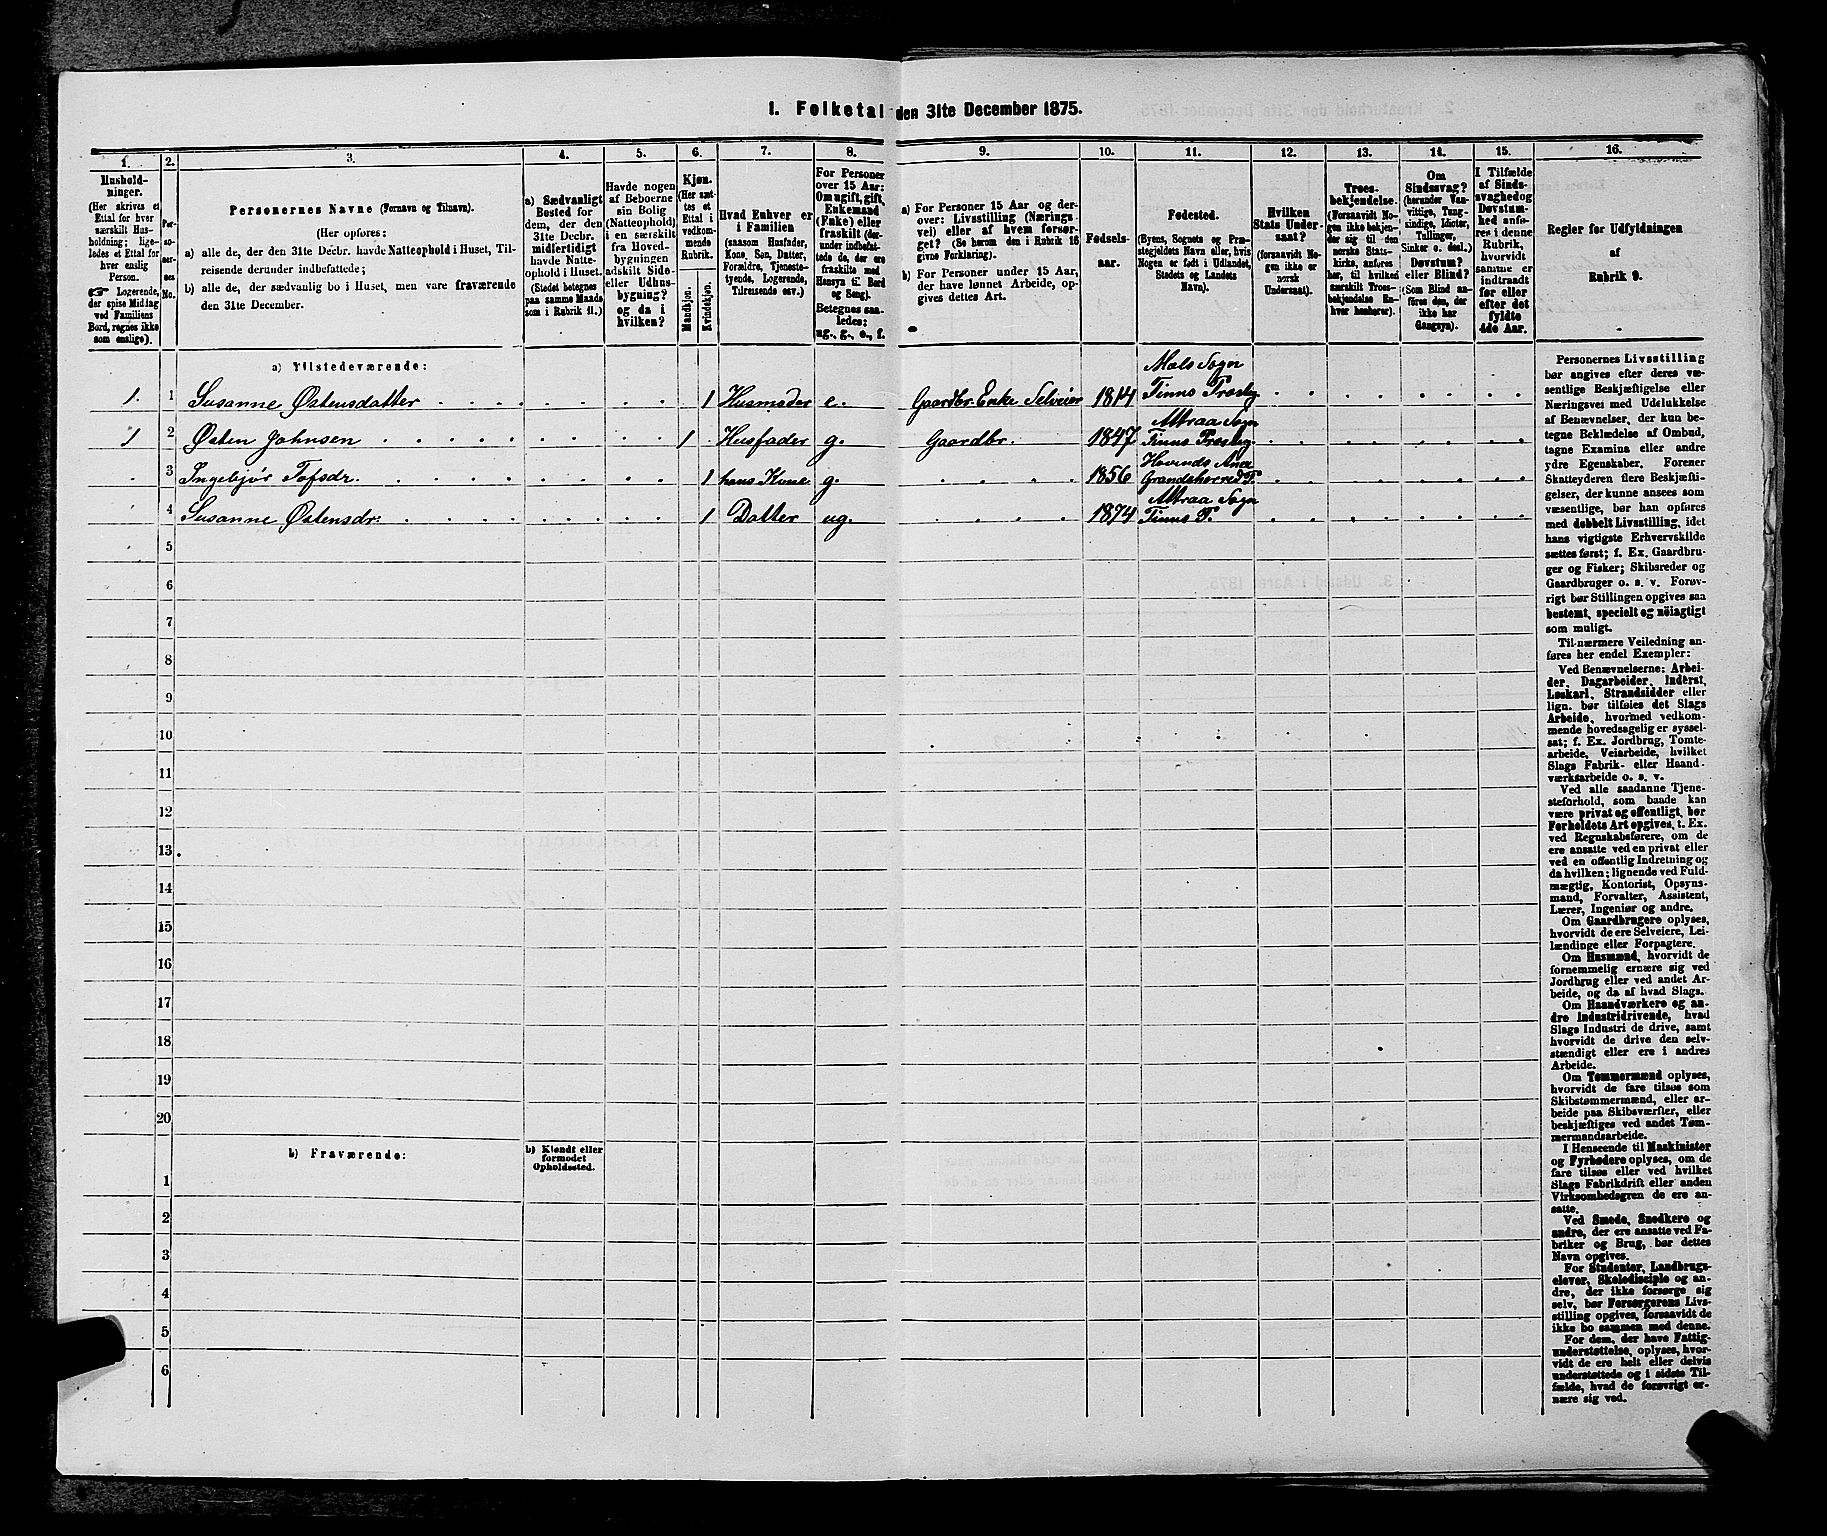 1. Folketal den 31te December 1875.
1. 2. 3. 4. 5. 6. 7. 8. 9. 10. 11. 12. 13. 14. 15. 16.
Hushold-
ninger.
(Her skrives et
Ettal for hver
særskilt Hus-
holdning; lige-
ledes et Ettal for
hver enslig
Person.
☞ Logerende,
der spise Middag
ved Familiens
Bord, regnes ikke
som enslige).
Per-
so-
ner-
nes
No.
Personernes Navne (Fornavn og Tilnavn).
(Her opføres:
a) alle de, der den 31te Decbr. havde Natteophold i Huset, Til-
reisende derunder indbefattede;
b) alle de, der sædvanlig bo i Huset, men vare fraværende
den 31te December.
a) Sædvanligt
Bosted for
dem, der den
31te Decbr.
midlertidigt
havde Natte-
ophold i Huset.
(Stedet betegnes
paa samme Maade
som i Rubrik 11.)
Havde nogen
af Beboerne
sin Bolig
(Natteophold)
i en særskilt
fra Hoved-
bygningen
adskilt Side-
eller Udhus-
bygning?
og da i
hvilken?
Kjøn.
(Her sæt-
tes et
Ettal i
vedkom-
mende
Rubrik.
Mandkjøn.
Kvindekjøn.
Hvad Enhver er
i Familien
(saasom Husfader,
Kone, Søn, Datter,
Forældre, Tjeneste-
tyende, Logerende,
Tilreisende osv.)
For Personer
over 15 Aar:
Om ugift, gift,
Enkemand
(Enke) eller
fraskilt (der-
under indbefat-
tede de, der ere
fraskilte med
Hensyn til Bord
og Seng).
Betegnes saa-
ledes:
ug., g., e., f.
a) For Personer 15 Aar og der-
over: Livsstilling (Nærings-
vei) eller af hvem forsør-
get? (Se herom den i Rubrik 16
givne Forklaring).
b) For Personer under 15 Aar,
der have lønnet Arbeide, op-
gives dettes Art.
Fødsels-
aar.
Fødested.
(Byens, Sognets og Præ-
stegjeldets Navn eller, hvis
Nogen er født i Udlandet,
Stedets og Landets
Navn).
Hvilken
Stats Under-
saat?
(forsaavidt No-
gen ikke er
norsk
Undersaat).
Troes-
bekjendelse.
(Forsaavidt No-
gen ikke bekjen-
der sig til den
norske Stats-
kirke, anføres
her, til hvilken
særskilt Troes-
bekjendelse En-
hver henhører).
Om
Sindssvag?
(herunder Van-
vittige, Tung-
sindige, Idioter,
Tullinger,
Sinker o. desl.)
Døvstum?
eller Blind?
(Som Blind an-
føres den, der
ikke har
Gangsyn).
I Tilfælde
af Sinds-
svaghed og
Døvstum-
hed anfø-
res i denne
Rubrik,
hvorvidt
samme er
indtraadt
før eller
efter det
fyldte
4de Aar.
Regler for Udfyldningen
af
Rubrik 9.
a) Tilstedeværende:
1. 1 Susanne Østensdatter 1 Husmoder e. Gaardbr. Enke Selveier 1814 Mæls Sogn Tinns Præstg.
1 2 Østen Johnsen 1 Husfader g. Gaardbr. 1847 Attraa Sogn Tinns Præstg.
3 Ingebjør Tofsdr. 1 hans Kone g. 1856 Hovinds Anex Grandsherred P.
4 Susanne Østensdr: 1 Datter ug. 1874 Attraa Sogn Tinns P.
5
6
7
8
9
10
11
12
13
14
15
16
17
18
19
20
b) Fraværende:
b) Kjendt eller
formodet
Opholdssted.
1
2
3
4
5
6
Personernes Livsstilling
bør angives efter deres væ-
sentlige Beskjæftigelse eller
Næringsvei med Udelukkelse
af Benævnelser, der kun be-
tegne Beklædelse af Ombud,
tagne Examina eller andre
ydre Egenskaber. Forener
Skatteyderen flere Beskjæfti-
gelser, der kunne ansees som
væsentlige, bør han opføres
med dobbelt Livsstilling, idet
hans vigtigste Erhvervskilde
sættes først; f. Ex. Gaardbru-
ger og Fisker; Skibsreder og
Gaardbruger o. s. v. Forøv-
rigt bør Stillingen opgives saa
bestemt, specielt og nöiagtigt
som muligt.
Til nærmere Veiledning an-
føres her endel Exempler:
Ved Benævnelserne: Arbei-
der, Dagarbeider, Inderst,
Løskarl, Strandsidder eller
lign. bør tilføies det Slags
Arbeide, hvormed vedkom-
mende hovedsagelig er syssel-
sat; f. Ex. Jordbrug, Tomte-
arbeide, Veiarbeide, hvilket
Slags Fabrik- eller Haand-
værksarbeide o. s. v.
Ved alle saadanne Tjene-
steforhold, som baade kan
være privat og offentligt, bør
Forholdets Art opgives, t. Ex.
ved Regnskabsførere, om de
ere ansatte ved en privat eller
ved en offentlig Indretning og
da hvilken; lignende ved Fuld-
mægtig, Kontorist, Opsyns-
mand, Forvalter, Assistent,
Lærer, Ingeniør og andre.
Om Gaardbrugere oplyses,
hvorvidt de ere Selveiere, Lei-
lændinge eller Forpagtere.
Om Husmænd, hvorvidt de
fornemmelig ernære sig ved
Jordbrug eller ved andet Ar-
beide, og da af hvad Slags.
Om Haandværkere og an-
dre Industridrivende, hvad
Slags Industri de drive, samt
hvorvidt de drive den selv-
stændigt eller ere i andres
Arbeide.
Om Tømmermænd oplyses,
hvorvidt de fare tilsøs som
Skibstømmermænd, eller ar-
beide paa Skibsværfter, eller
beskjæftiges ved andet Tøm-
mermandsarbeide.
I Henseende til Maskinister
og Fyrbødere oplyses, om de
fare tilsøs eller ved hvilket
Slags Fabrikdrift eller anden
Virksomhedsgren de ere an-
satte.
Ved Smede, Snedkere og
andre, der ere ansatte ved Fa-
briker og Brug, bør dettes
Navn opgives.
For Studenter, Landbrugs-
elever, Skoledisciple og an-
dre, der ikke forsørge sig
selv, bør Forsørgerens Livs-
stilling opgives, forsaavidt de
ikke bo sammen med denne.
For dem, der have Fattig-
understøttelse, oplyses, hvor-
vidt de ere helt eller delvis
understøttede og i sidste Til-
fælde, hvad de forøvrigt er-
nære sig ved.